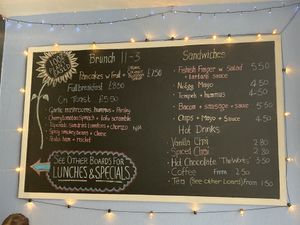 100% PLANT BASED
Brunch 11-3
Pancakes w fruit + £7.50
Full breakfast £8.50
On Toast £5.50
- Garlic mushrooms, hummus + Parsley
- Cherry tomato, spinach + tofu scramble
- chorizo N/A
- Spicy smokey beans + cheese
- Pesto, ham + rocket
SEE OTHER BOARDS FOR
LUNCHES & SPECIALS
Sandwiches
- Fishish Finger w Salad 5.50
+ tartare sauce
- Nugg Mayo 4.50
- Tempeh + hummus 4.50
- Bacon + sausage + sauce 5.50
- Chips + Mayo + Sauce 4.50
Hot Drinks
- Vanilla Chai 2.80
- Spiced Chai 2.80
- Hot Chocolate 'The Works' 3.50
- Coffee From 2.50
- Tea (see other board) From 1.50